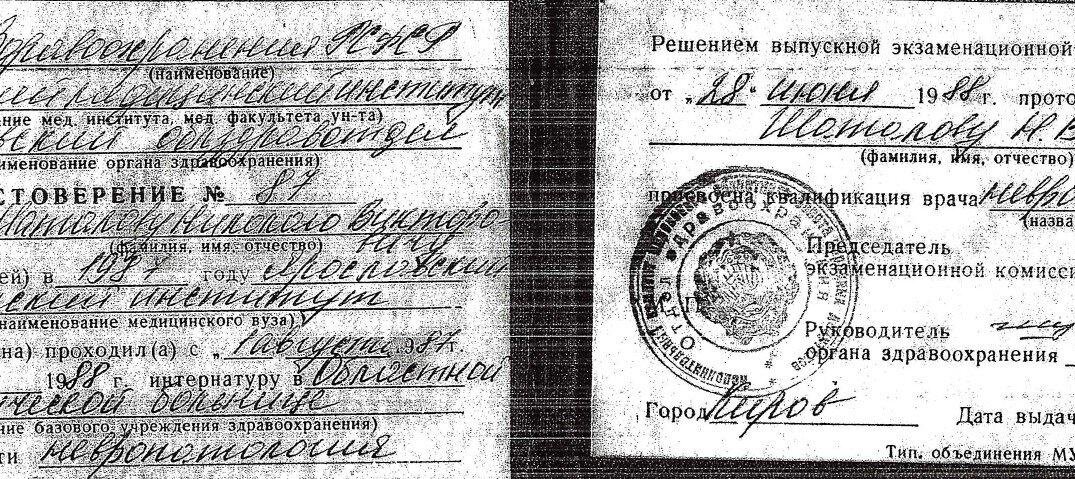 Здравоохранения РСФСР
(наименование)
медицинский институт
ние мед. института, мед. факультета ун-та)
ский облздравотдел
именование органа здравоохранения)
СТОВЕРЕНИЕ № 87
Шаталову Николаю Викторо
(фамилия, имя, отчество) вичу
ей) в 1987 году Ярославский
ский институт
наименование медицинского вуза)
на) проходил(а) с „1 августа 1987г.
1988 г. интернатуру в Областной
ческой больнице
ние базового учреждения здравоохранения)
ти невропатология
Решением выпускной экзаменационной
от „28" июня 1988г. прото
Шаталову Н. В
(фамилия, имя, отчество)
присвоена квалификация врача невро
(назва
Председатель
экзаменационной комисси
Руководитель
органа здравоохранения
Город Киров
Дата выдач
Тип. объединения МУ
Отдел здравоохранения